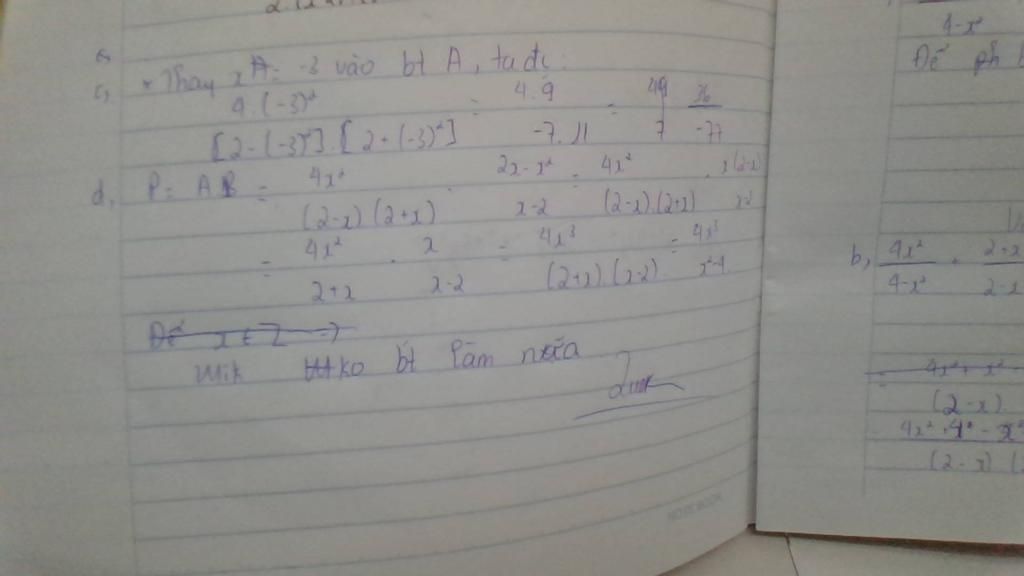 c, * Thay x = -3 vào bt A, ta đc:
4.(-3)² / [2-(-3)²].[2+(-3)²] = 4.9 / -7.11 = 36 / -77
d, P = AB = 4x² / (2-x)(2+x) . 2x-x² / x-2 = 4x² / (2-x).(2+x) . x(2-x) / x-2
= 4x² / 2+x . x / x-2 = 4x³ / (2+x).(x-2) = 4x³ / x²-4
Để x ∈ Z =>
Mik ko bt làm nữa
NOTEBOOK
4-x²
Để ph
b, 4x² / 4-x² + 2+x / 2-x
4x² + x²
(2-x)
(2-x)